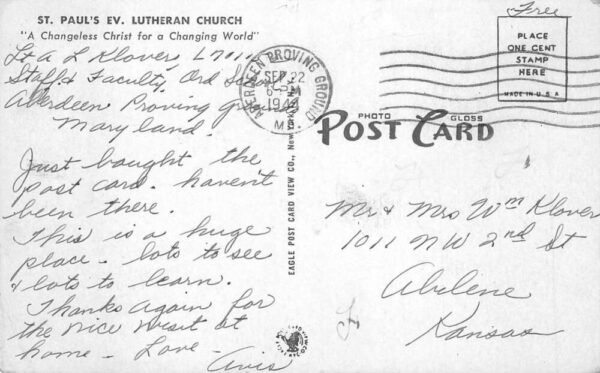 ST. PAUL'S EV. LUTHERAN CHURCH
"A Changeless Christ for a Changing World"
Lt A L Klover, L7011
Staff & Faculty, Ord
Aberdeen Proving
Maryland.
Just bought the
post card. haven't
been there.
This is a huge
place - lots to see
& lots to learn.
Thanks Again for
the nice visit at
home - Love -
Avis
EAGLE POST CARD VIEW CO., New York
ABERDEEN PROVING GROUND
SEP 22
MD.
PHOTO GLOSS
POST CARD
Free
PLACE
ONE CENT
STAMP
HERE
MADE IN U.S.A
Mr & Mrs Wm Klover
1011 NW 2nd St
Abilene
Kansas